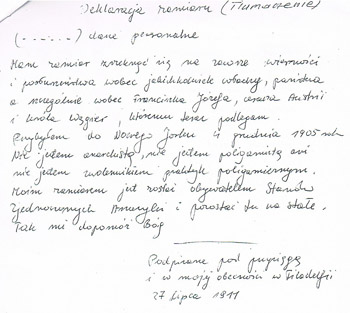 Deklaracja zamiaru (Tłumaczenie)
(.......) dane personalne
Mam zamiar zrzeknąć się na zawsze wierności
i posłuszeństwa wobec jakichkolwiek władcy, państwa
a szczególnie wobec Franciszka Józefa, cesarza Austrii
i króla Węgier, któremu teraz podlegam.
Przybyłem do Nowego Jorku 4 grudnia 1905 rok
Nie jestem anarchistą, nie jestem poligamistą ani
nie jestem zwolennikiem praktyk poligamicznym.
Moim zamiarem jest zostać obywatelem Stanów
Zjednoczonych Ameryki i pozostać tu na stałe.
Tak mi dopomóż Bóg
Podpisane pod przysięgą
i w mojej obecności w Filadelfii
27 lipca 1911